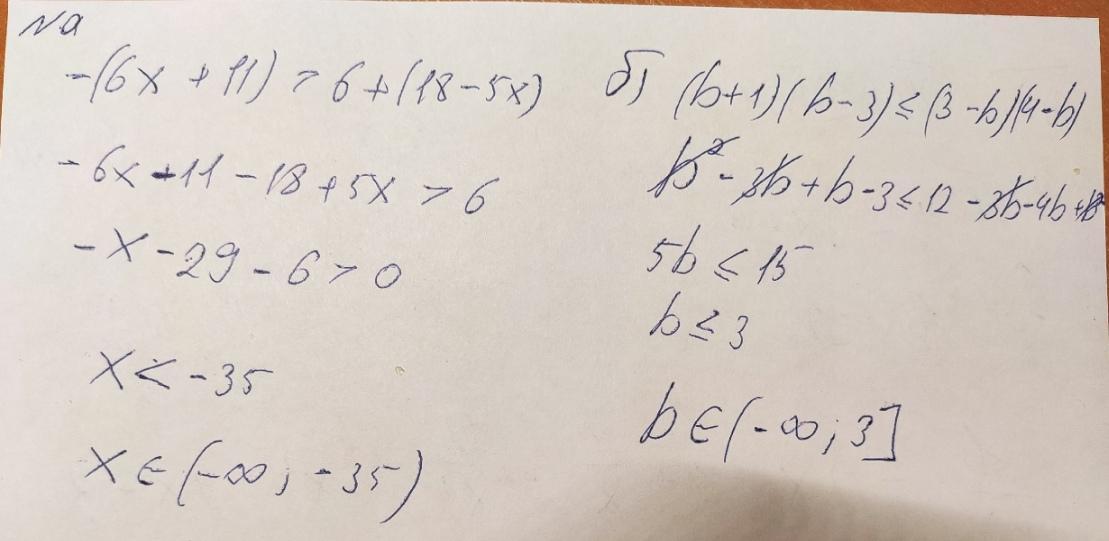 Nа
-(6x + 11) > 6 + (18 - 5x)
- 6x - 11 - 18 + 5x > 6
- x - 29 - 6 > 0
x < -35
x ∈ (-∞; -35)
б) (b+1)(b-3) ≤ (3-b)(4-b)
b² - 3b + b - 3 ≤ 12 - 3b - 4b + b²
5b ≤ 15
b ≤ 3
b ∈ (-∞; 3]